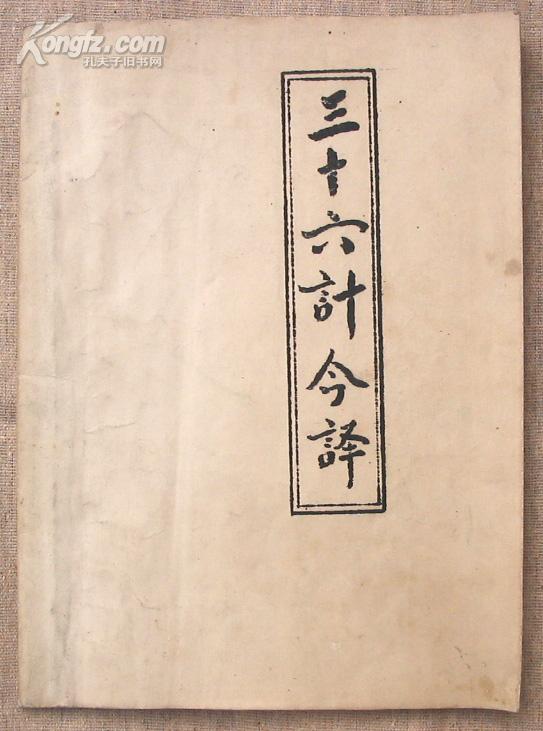 Kongfz.com
孔夫子旧书网
三十六計今譯